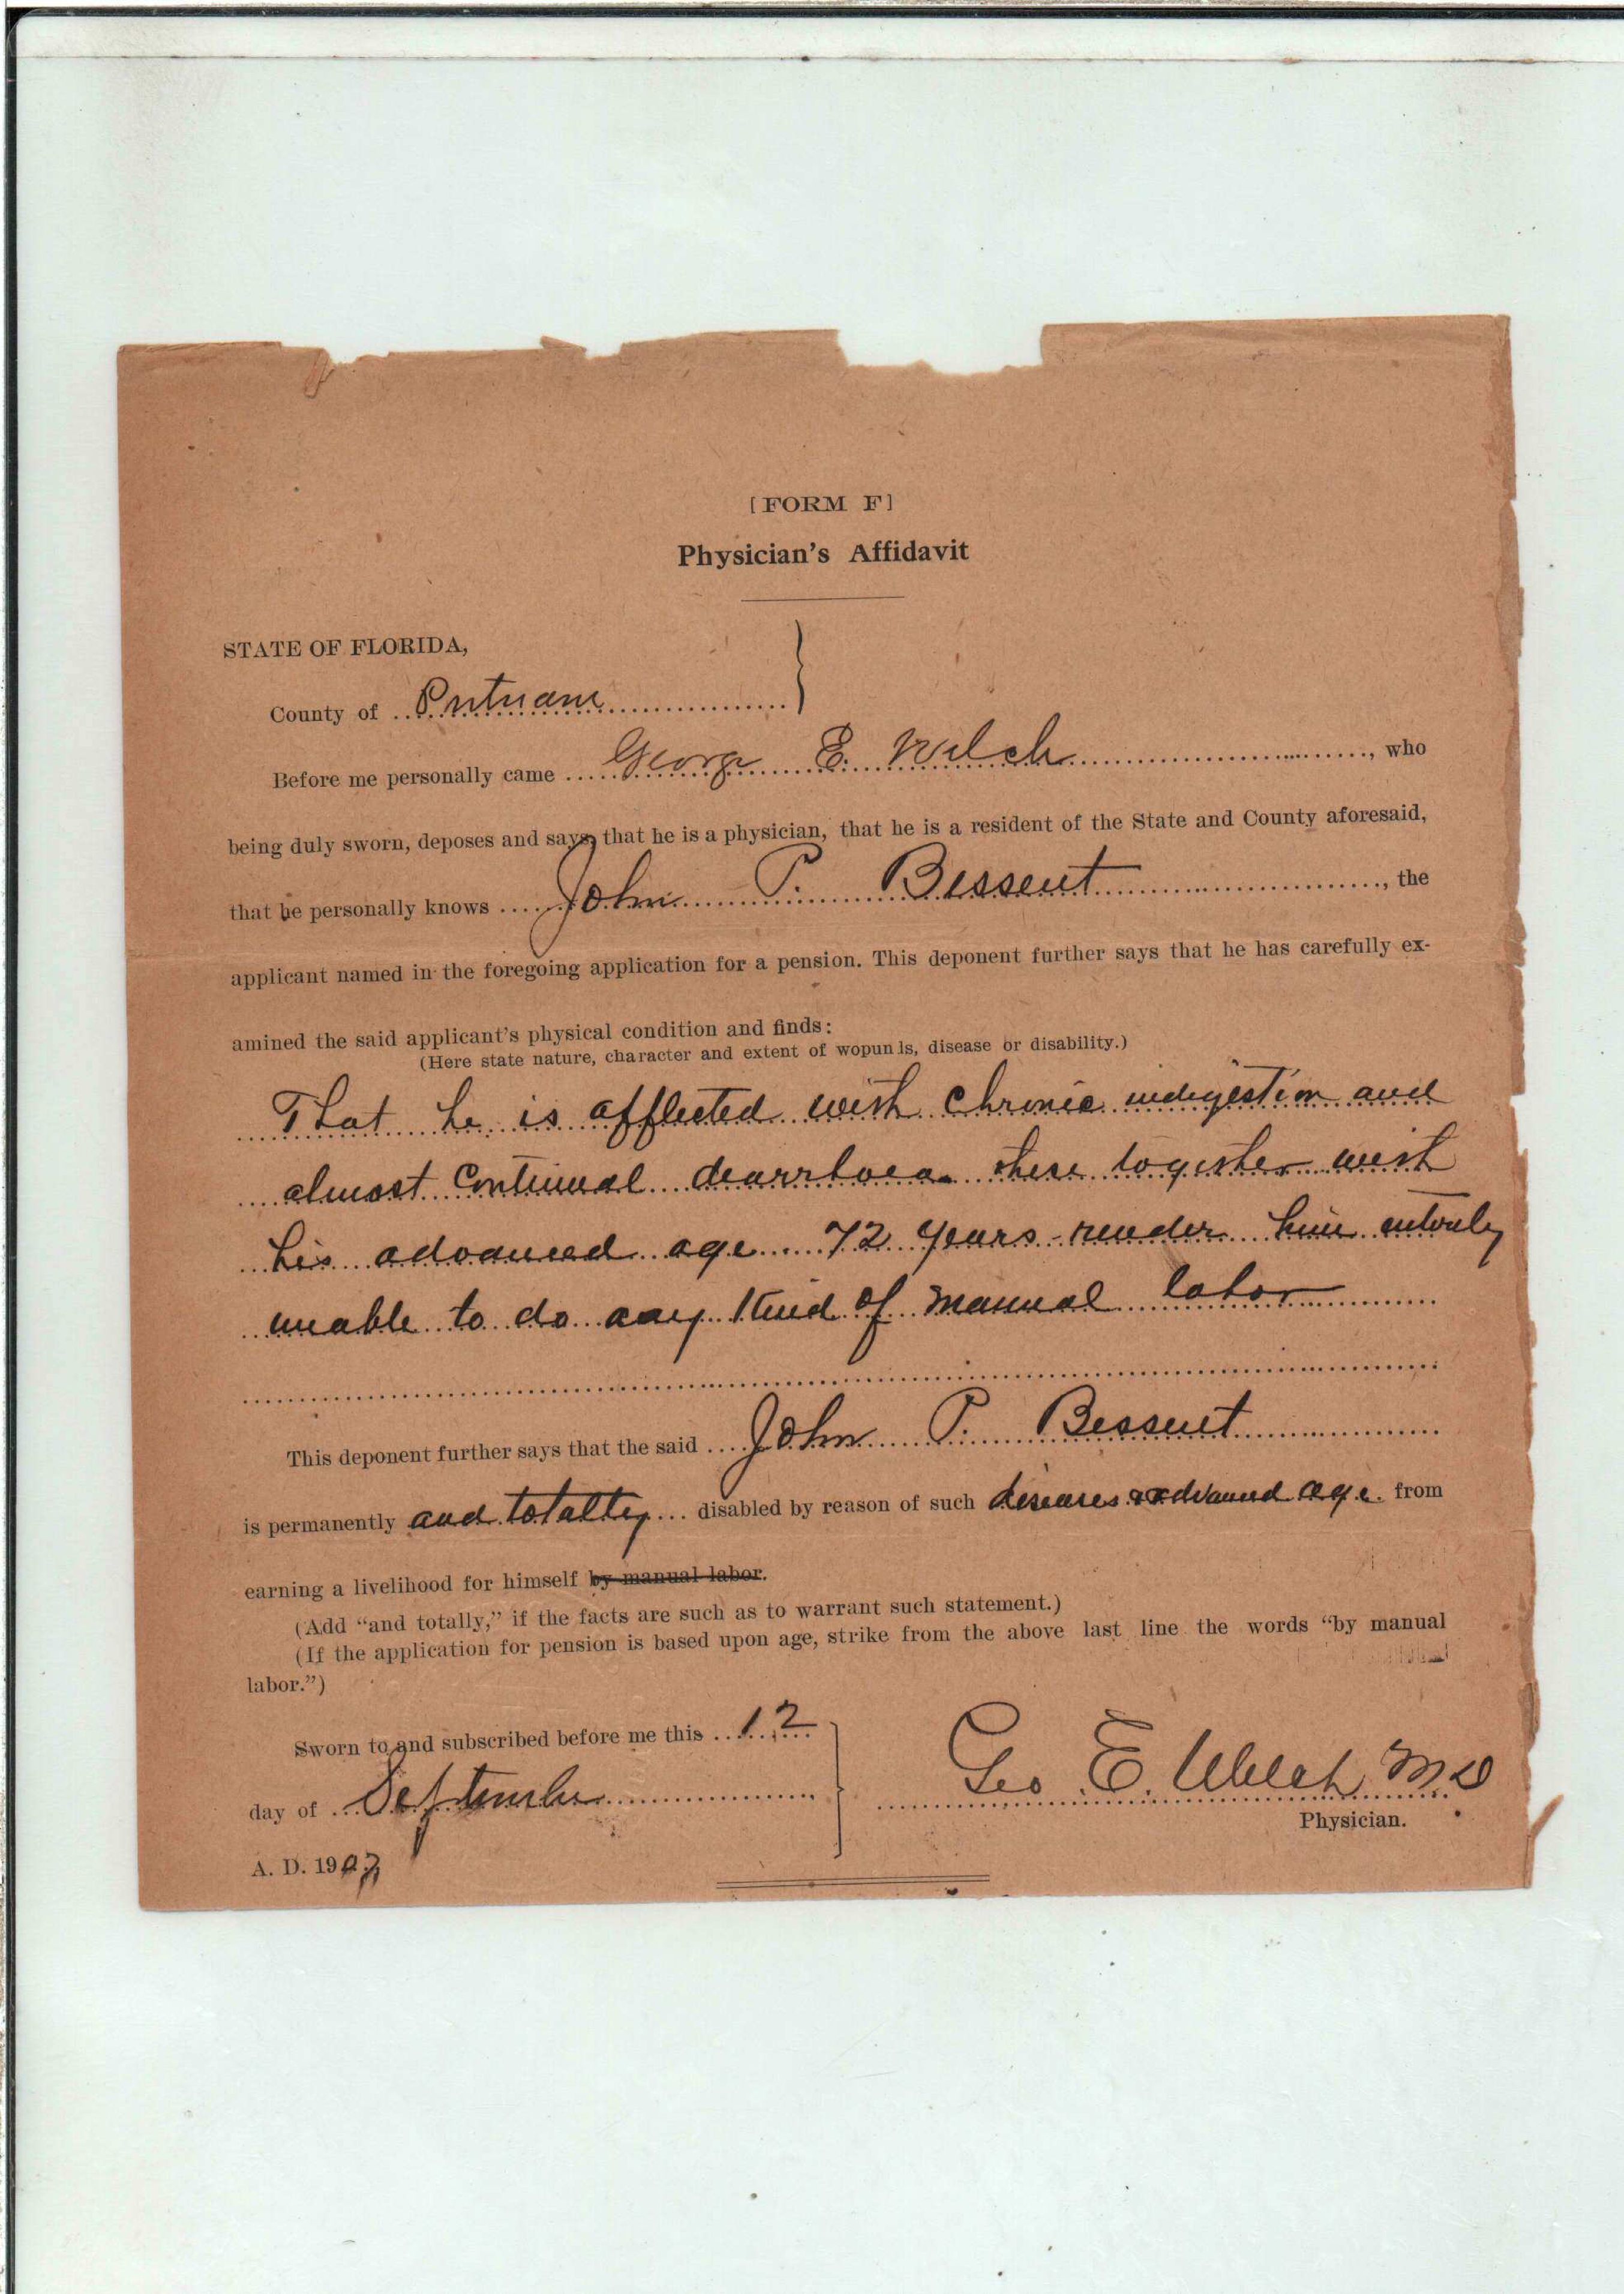 [FORM F]
Physician's Affidavit
STATE OF FLORIDA,
County of Putnam
Before me personally came George E. Welch, who
being duly sworn, deposes and says, that he is a physician, that he is a resident of the State and County aforesaid,
that he personally knows John P. Bessent, the
applicant named in the foregoing application for a pension. This deponent further says that he has carefully ex-
amined the said applicant's physical condition and finds:
(Here state nature, character and extent of wopunds, disease or disability.)
That he is afflicted with Chronic indigestion and
almost Continual dearrhoea these together with
his advanced age 72 years render him entirely
unable to do any kind of manual labor
This deponent further says that the said John P. Bessent
is permanently and totally disabled by reason of such diseases & advanced age from
earning a livelihood for himself by manual labor.
(Add "and totally," if the facts are such as to warrant such statement.)
(If the application for pension is based upon age, strike from the above last line the words "by manual
labor.")
Sworn to and subscribed before me this 12
day of September
Geo E. Welch MD
Physician.
A. D. 190